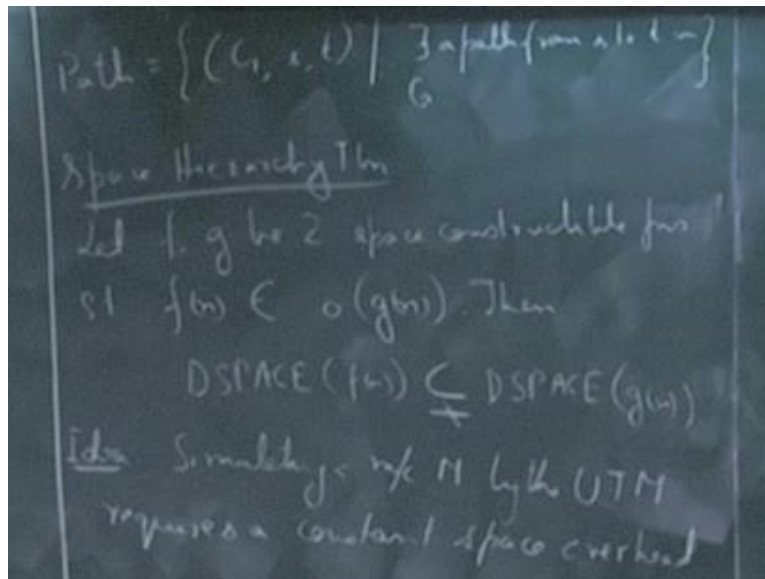 Path = { (G, s, t) | ∃ a path from s to t in
G }
Space Hierarchy Thm
Let f, g be 2 space constructible fns
st f(n) ∈ o(g(n)). Then
DSPACE(f(n)) ⊊ DSPACE(g(n))
Idea Simulating a m/c M by the UTM
requires a constant space overhead